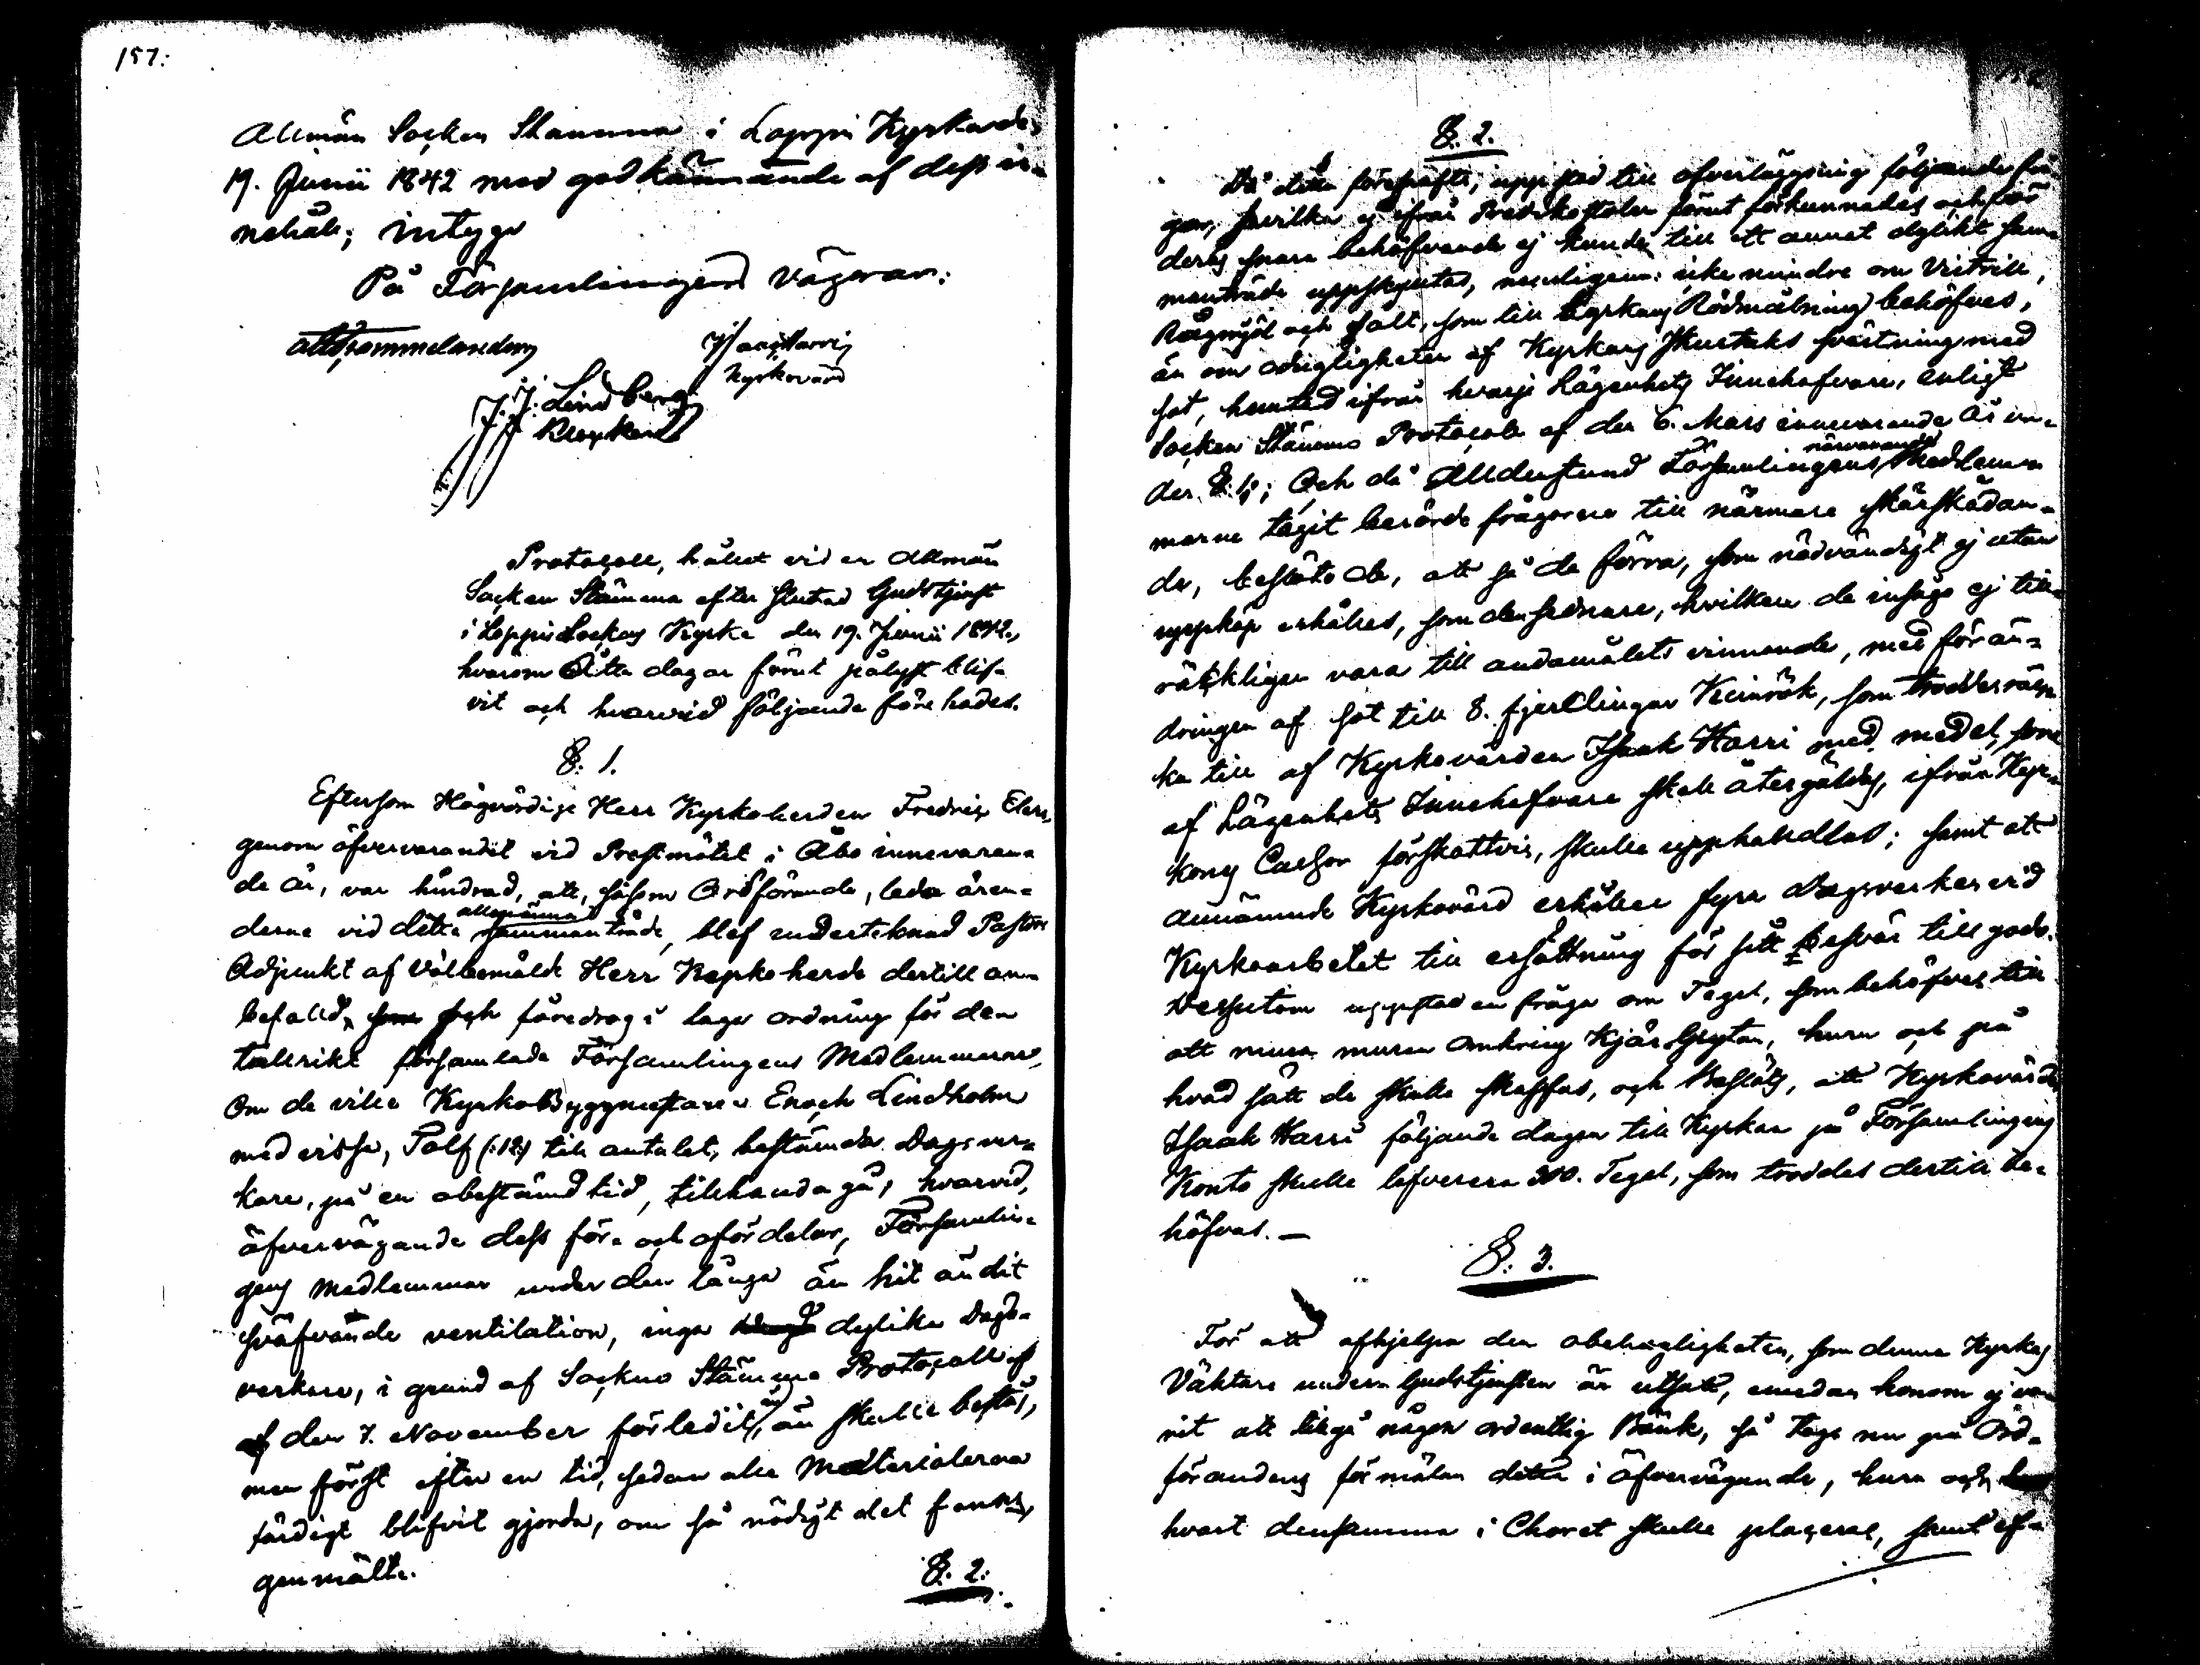 157:
Allmän Socken Stämma i Loppis Kyrka den
19. Junii 1842 med godkännande af dess in-
nehåll; intyga
På Församlingens vägnar:
J. J. Lindberg
Isaac Harri
Kyrkovärd
Protocoll, hållet vid en Allmän
Socken Stämma efter slutad Gudstjenst
i Loppis Sockens Kyrka den 19. Junii 1842.,
hvarom Åtta dagar förut pålyst blif-
vit och hvarvid följande förehades.
§. 1.
Eftersom Högvördige Herr Kyrkoherden Fredric
genom öfvervarandet vid Prestmötet i Åbo innevaran-
de år, var hindrad, att, såsom Ordförande, leda ären-
derne vid detta allmänna sammanträde, blef undertecknad Pastors
Adjunkt af Välbemälde Herr Kyrkoherde dertill an-
befalld, som och föredrog i laga ordning för den
talrikt församlade Församlingens Medlemmarne,
Om de ville Kyrkobyggmästaren Enoch Lindholm
med vissa, Tolf (:12:) till antalet, bestämda Dagsver-
kare, på en obestämd tid, tillhanda gå, hvarvid,
öfvervägande dess för- och ofördelar, Församlin-
gens Medlemmar under den långa än hit än dit
sväfvande ventilation, inga dylika Dags-
verkare, i grund af Socknens Stämma Protocoll af
af den 7. November förledit år, än skulle bestå,
men först efter en tid, sedan alla Materialerna
färdigt blifvit gjorda, om så nödigt det fanns,
genmälte.
§. 2.
§. 2.
Då detta förehafts, uppstod till öfverläggning följande frå-
gor, hvilka ej ifrån Predikostolen förut förkunnades och för
deras snara behöfvande ej kunde till ett annat dylikt sam-
manträde uppskjutas, nemligen: icke mindre om Victrill,
Rågmjöl och salt, som till Kyrkans Rödmålning behöfves,
än om odugligheten af Kyrkans skurtaks svärtning med
sot, hemtad ifrån hvarje Lägenhets Innehafvare, enligt
Socken Stämmo Protocoll af den 6. Mars innevarande år un-
der §. 1; Och då Alldenstund Församlingens närvarande Medlem-
marne tagit berörde frågorne till närmare skärskådan-
de, beslöto de, att så de förra, som nödvändigt ej utan
uppköp erhålles, som den sednare, hvilken de insågo ej till-
räckligen vara till ändamålets vinnande, med förän-
dringen af sot till 8. fjerdlingar Kimrök, som troddes räc-
ka till af Kyrkovärden Isaak Harri med medel, som
af Lägenhets Innehafvare skall återgäldas, ifrån Kyr-
kans Cassa förskottvis, skulle upphandlas; samt att
annämnde Kyrkovärd erhåller fyra dagsverken vid
Kyrkoarbetet till ersättning för sitt besvär till godo.
Dessutom uppstod en fråga om Tegel, som behöfves till
att mura muren omkring Kjär-Grytan, huru och på
hvad sätt de skulle skaffas, och Beslöts, att Kyrkovärden
Isaak Harri följande dagen till Kyrkan på Församlingens
Konto skulle lefverera 300. Tegel, som troddes dertill be-
höfvas. —
§. 3.
För att afhjelpa den obehagligheten, som denna Kyrkas
Väktare under Gudstjensten är utsatt, emedan honom ej va-
rit att tilgå någon ordentlig Bänk, så togs nu på Ord-
förandens förmälan detta i öfvervägande, huru och
hvart densamma i Choret skulle placeras, samt ef-